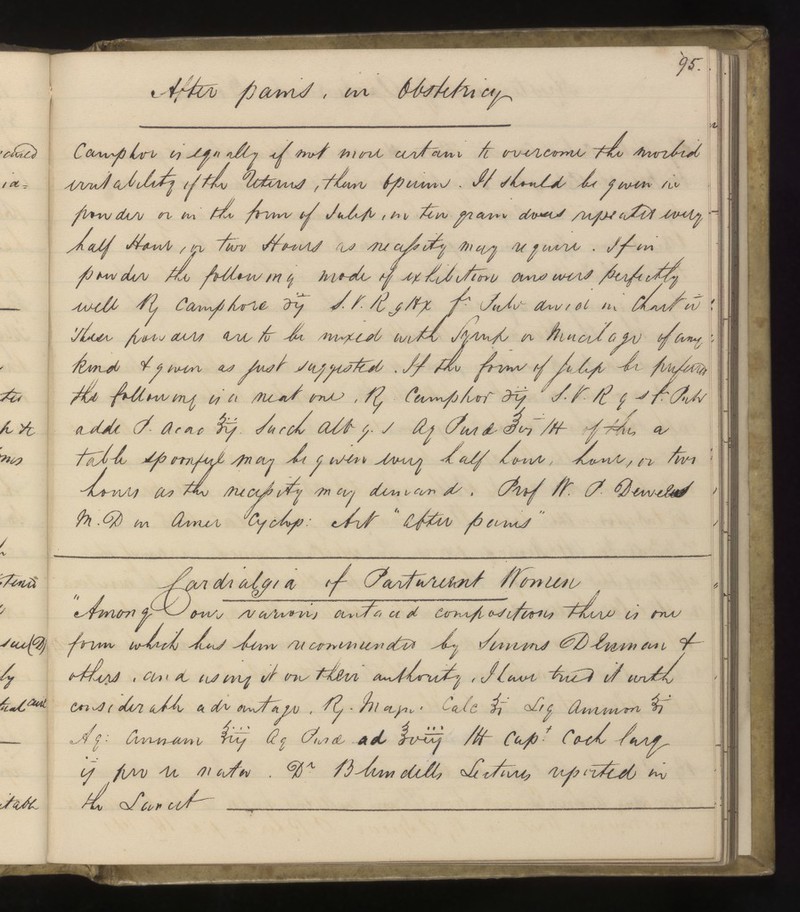 95.
After pains, in Obstetricy
Camphor is equally if not more certain to overcome the morbid
irritability of the Uterus, than opium. It should be given in
powder or in the form of Julep, in ten grain doses repeated every
half Hour, or two Hours as necessity may require. If in
powder the following mode of exhibition answers perfectly
well ℞ Camphorae ʒij S.V.R g ttx ft Pulv divid in Chart vi
These powders are to be mixed with Syrup or Mucilage of any
kind & given as just suggested. If the form of Julep be preferred
the following is a neat one, ℞ Camphor ʒij S.V.R q s ft Pulv
adde P. Acac ʒij Sacch Alb q. s Aq Purae ℥vi M of this a
table spoonful may be given every half hour, hour, or two
hours as the necessity may demand. Prof W. P. Dewees
M.D in Amer Cyclop: Art "after pains"
Cardialgia of Parturient Women
"Among our various antacid compositions there is one
form which has been recommended by Simms Denman &
others, and using it on their authority, I have tried it with
considerable advantage. ℞. Magn. Calc ʒi Liq Ammon ʒi
Aq: Cinnam ad M Capt Coch larg
ij pro re nata. Dr Blundells Lectures reported in
the Lancet